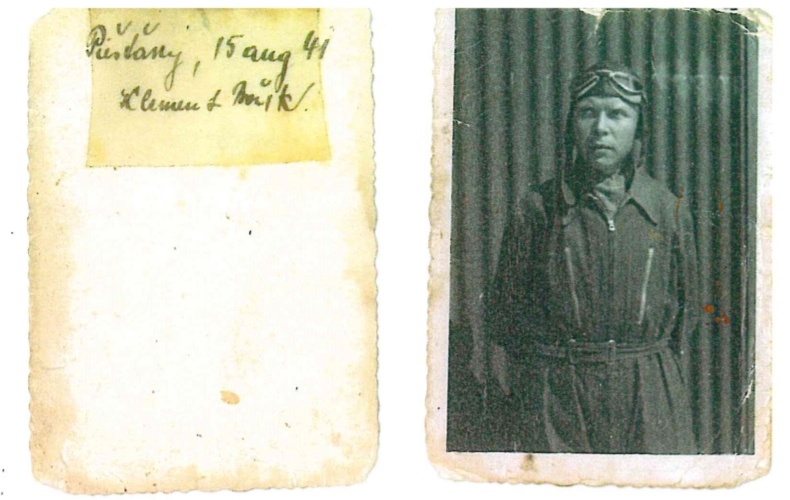 Piešťany, 15 aug 41
Klement